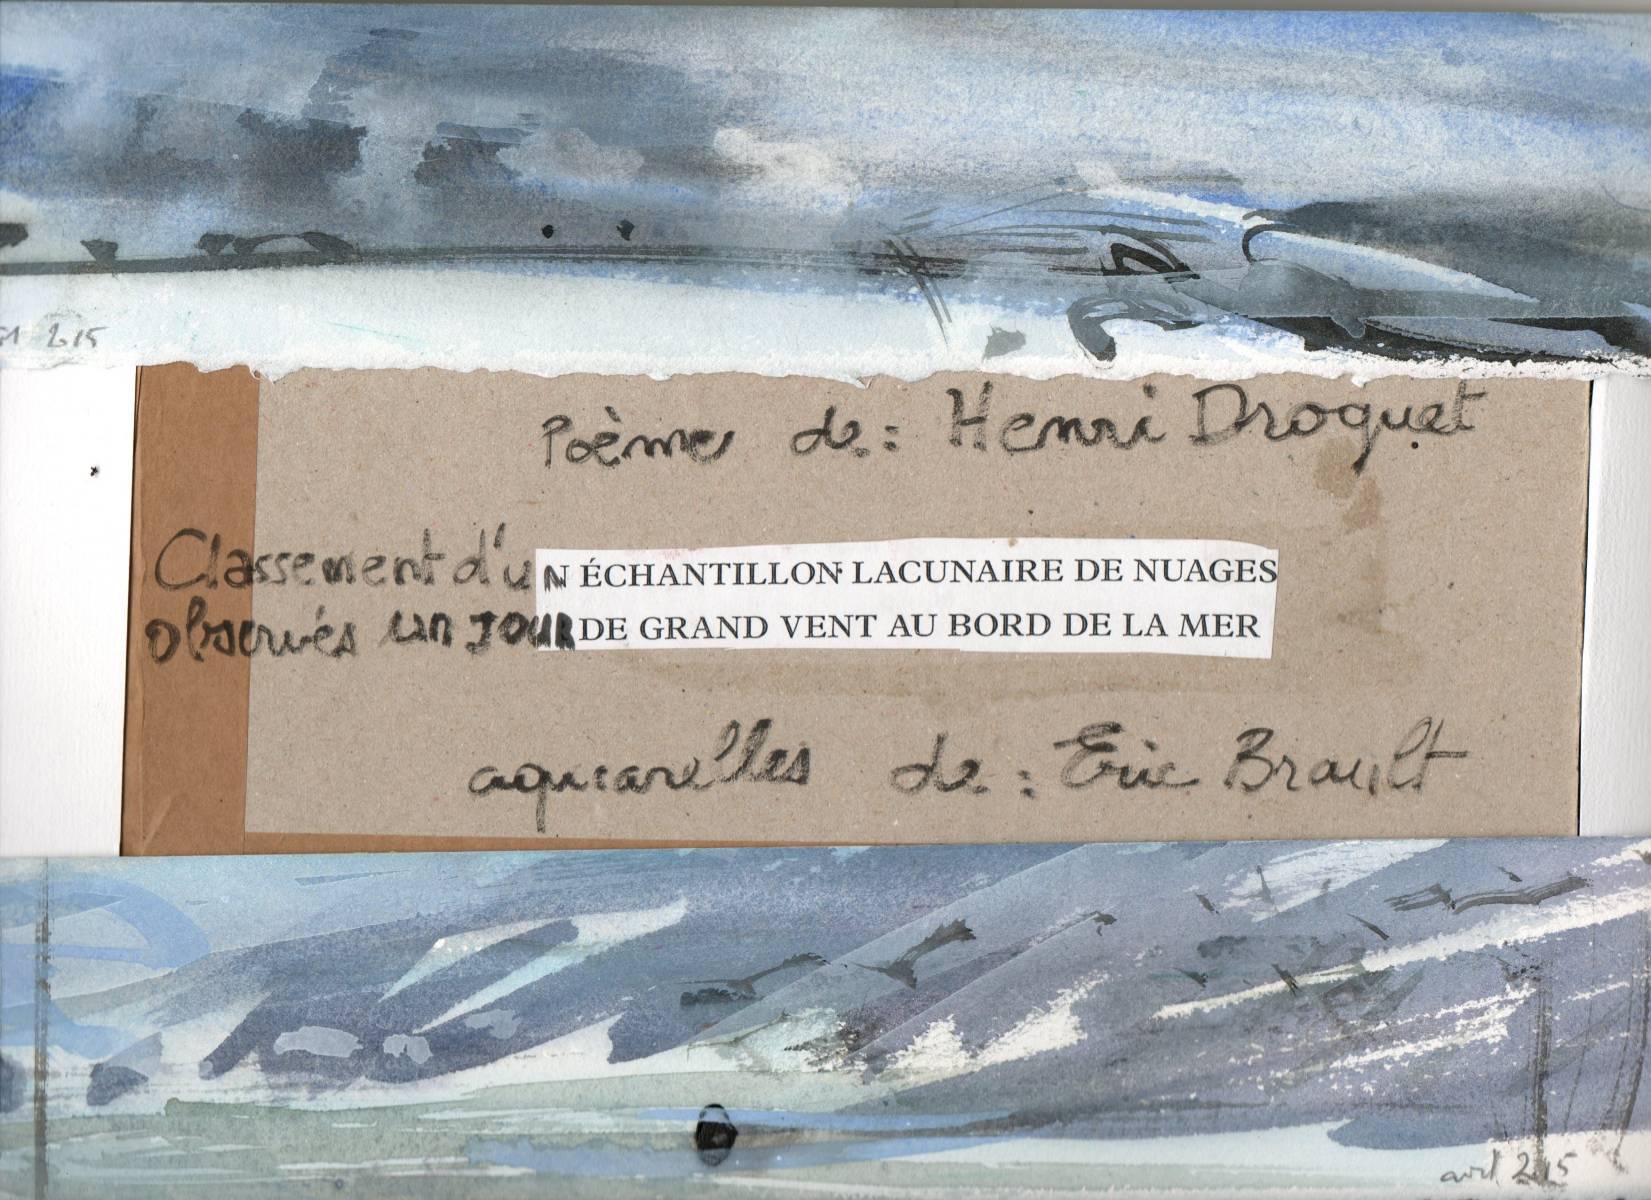 2.15
Poème de: Henri Droguet
Classement d'uN ÉCHANTILLON LACUNAIRE DE NUAGES
observés un JOUR DE GRAND VENT AU BORD DE LA MER
aquarelles de: Eric Brault
avril 2.15